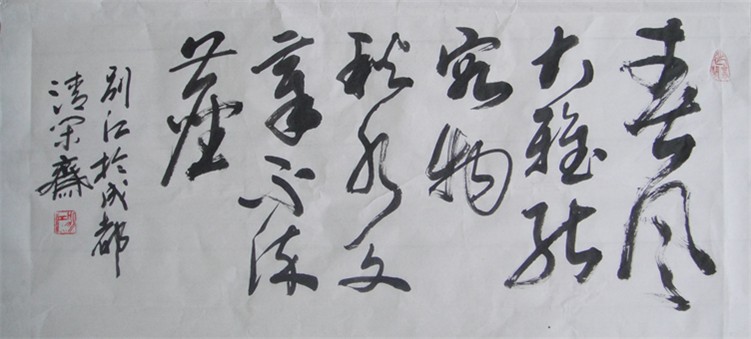 春风
大雅能
容物
秋水文
章不染
塵
别江於成都
清闲齋